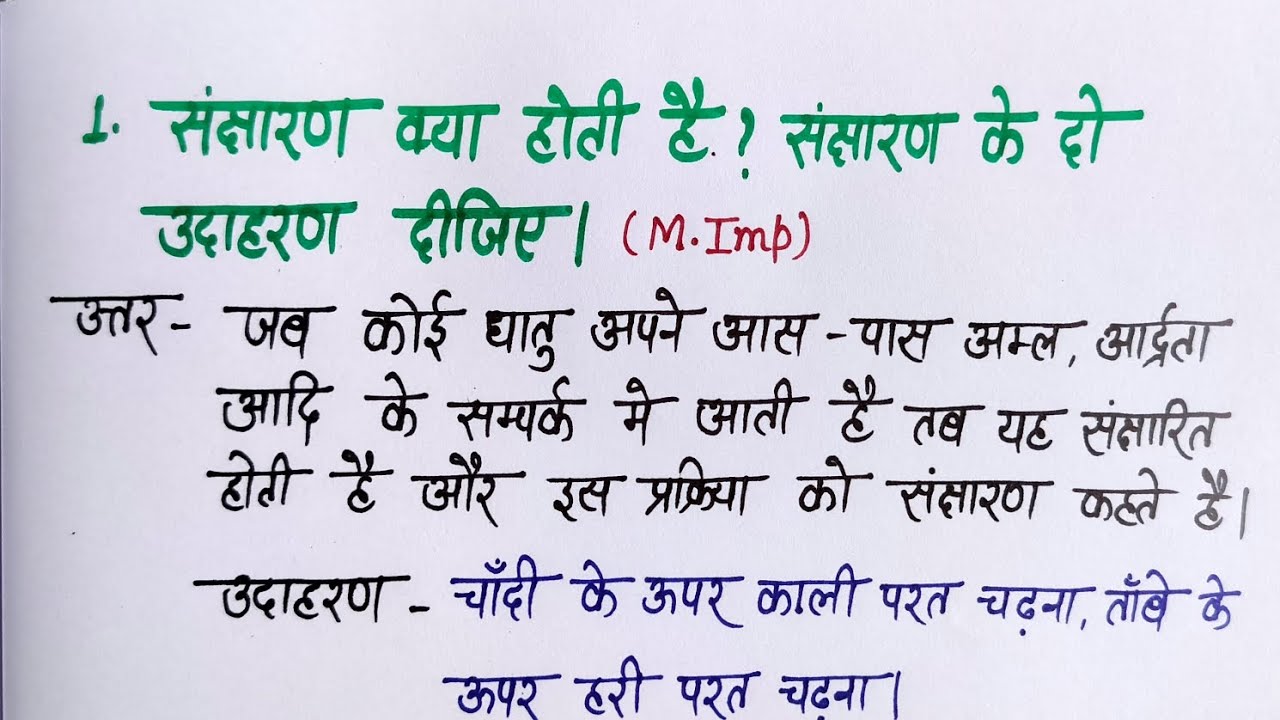 1. संक्षारण क्या होती है? संक्षारण के दो
उदाहरण दीजिए। (M.Imp)
उत्तर - जब कोई धातु अपने आस-पास अम्ल, आर्द्रता
आदि के सम्पर्क मे आती है तब यह संक्षारित
होती है और इस प्रक्रिया को संक्षारण कहते है।
उदाहरण - चाँदी के ऊपर काली परत चढ़ना, ताँबे के
ऊपर हरी परत चढ़ना।